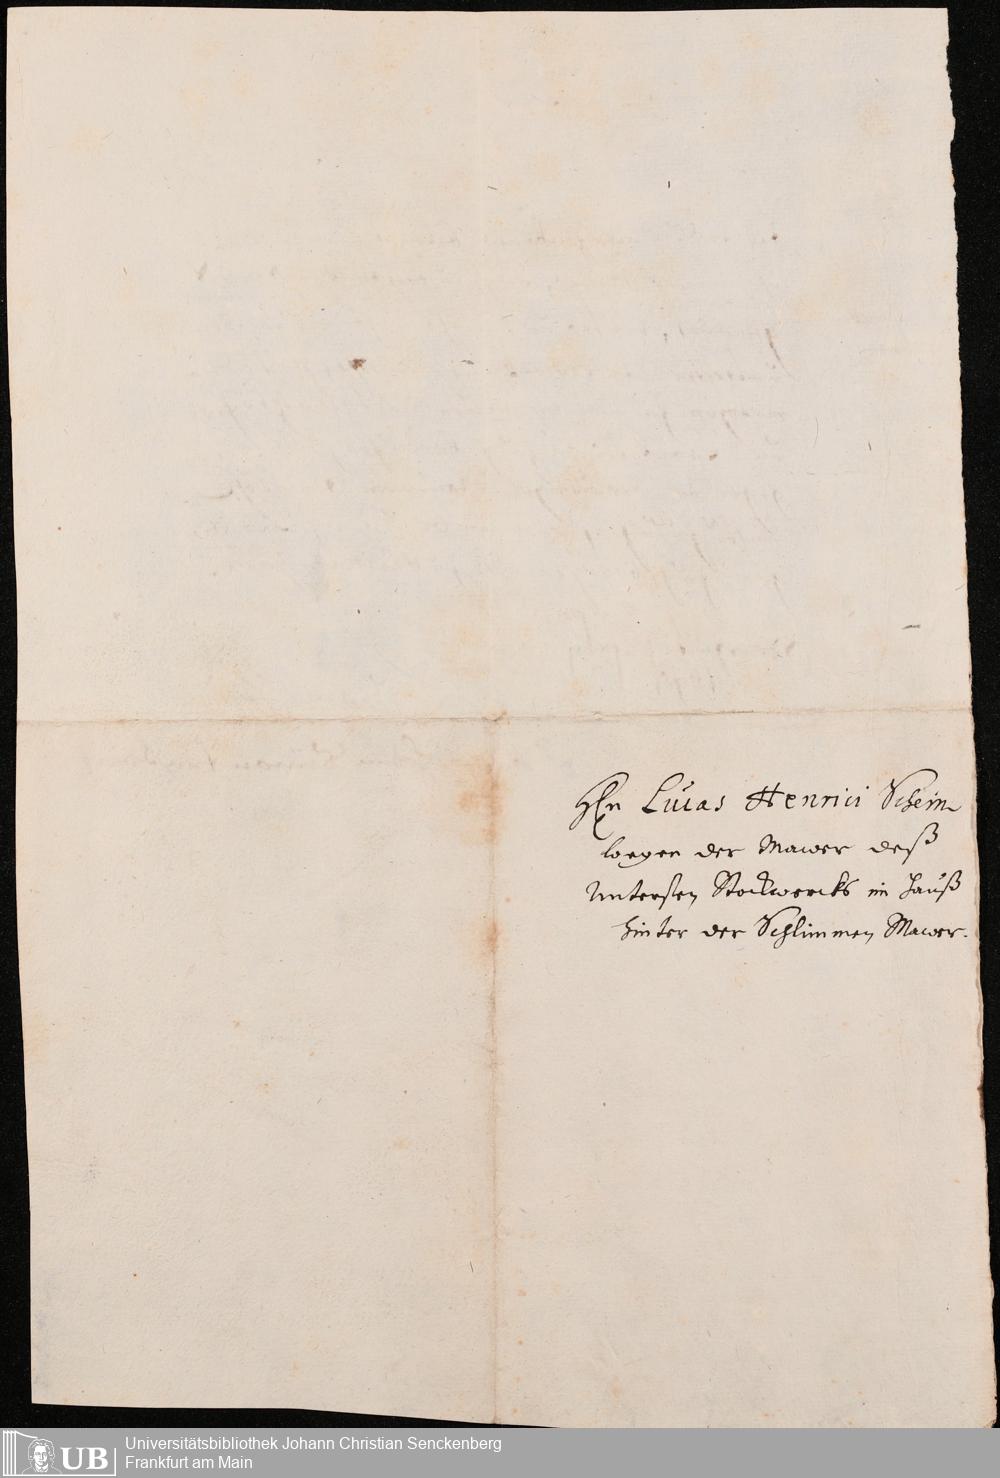 Hn Lucas Henrici Schein
wegen der Mawer deß
Untersten Stockwercks im Hauß
hinter der Schlimmen Mawer.
UB
Universitätsbibliothek Johann Christian Senckenberg
Frankfurt am Main